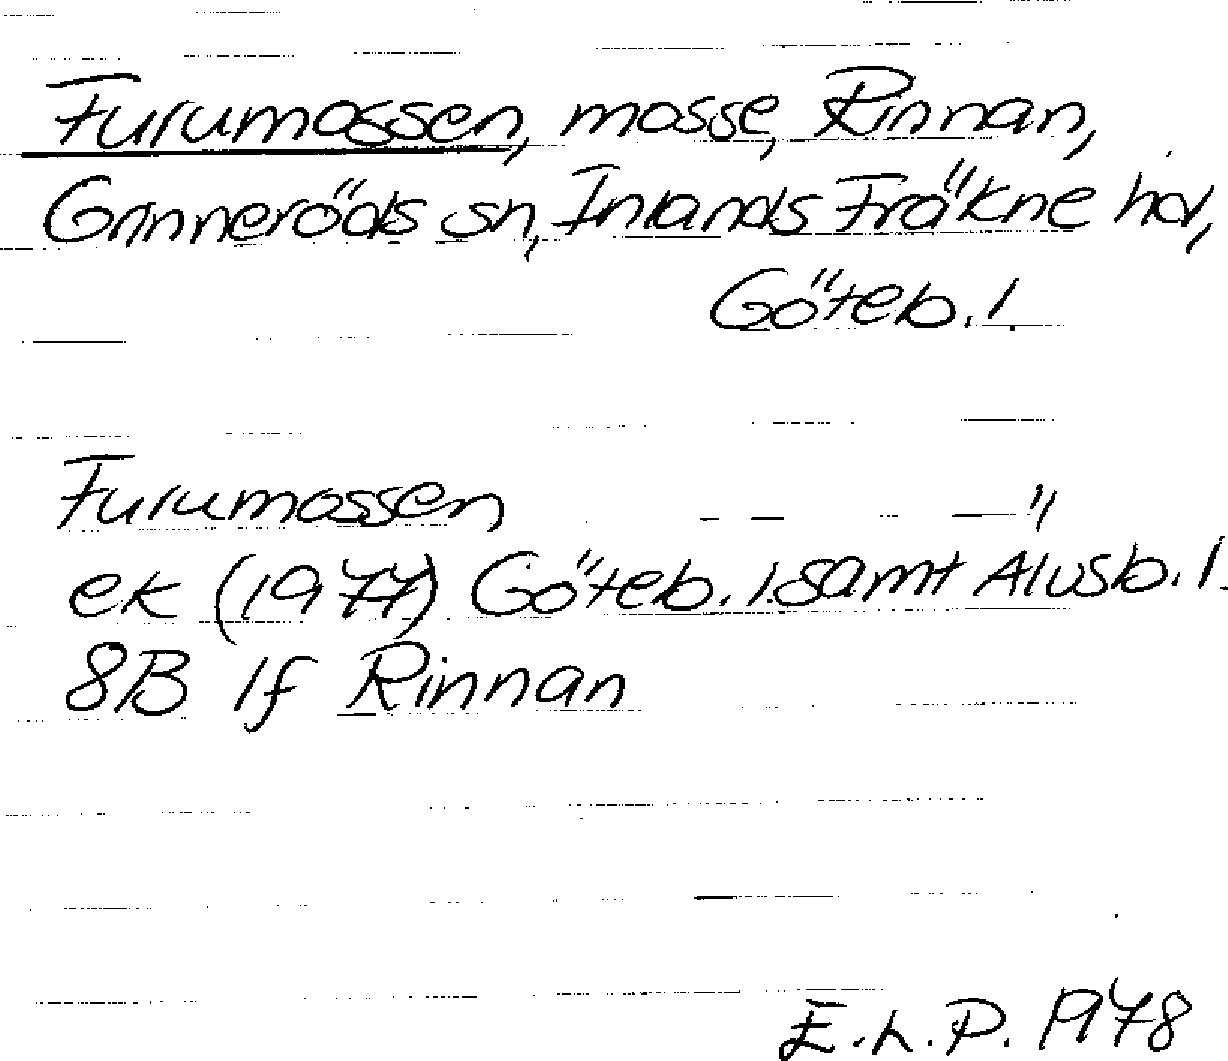 Furumossen, mosse, Rinnan,
Grinneröds sn, Inlands Fräkne hd,
Göteb. l.
Furumossen "
ek (1977) Göteb. l. samt Älvsb. l.
8B 1f Rinnan
E.L.P. 1978